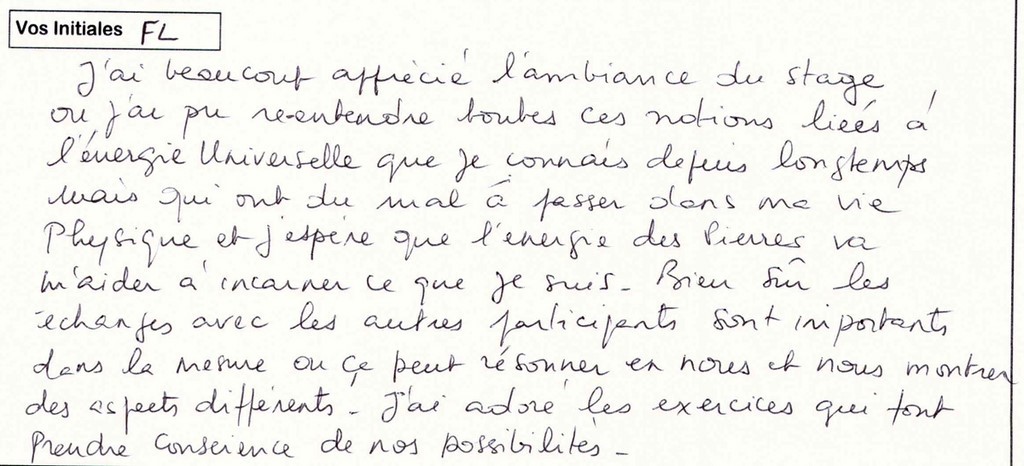 Vos Initiales FL
J'ai beaucoup apprécié l'ambiance du stage
où j'ai pu re-entendre toutes ces notions liées à
l'énergie Universelle que je connais depuis longtemps
mais qui ont du mal à passer dans ma vie
Physique et j'espère que l'énergie des Pierres va
m'aider à incarner ce que je suis - Bien sûr les
échanges avec les autres participants sont importants
dans la mesure ou ça peut résonner en nous et nous montrer
des aspects différents - J'ai adoré les exercices qui font
Prendre Conscience de nos possibilités -